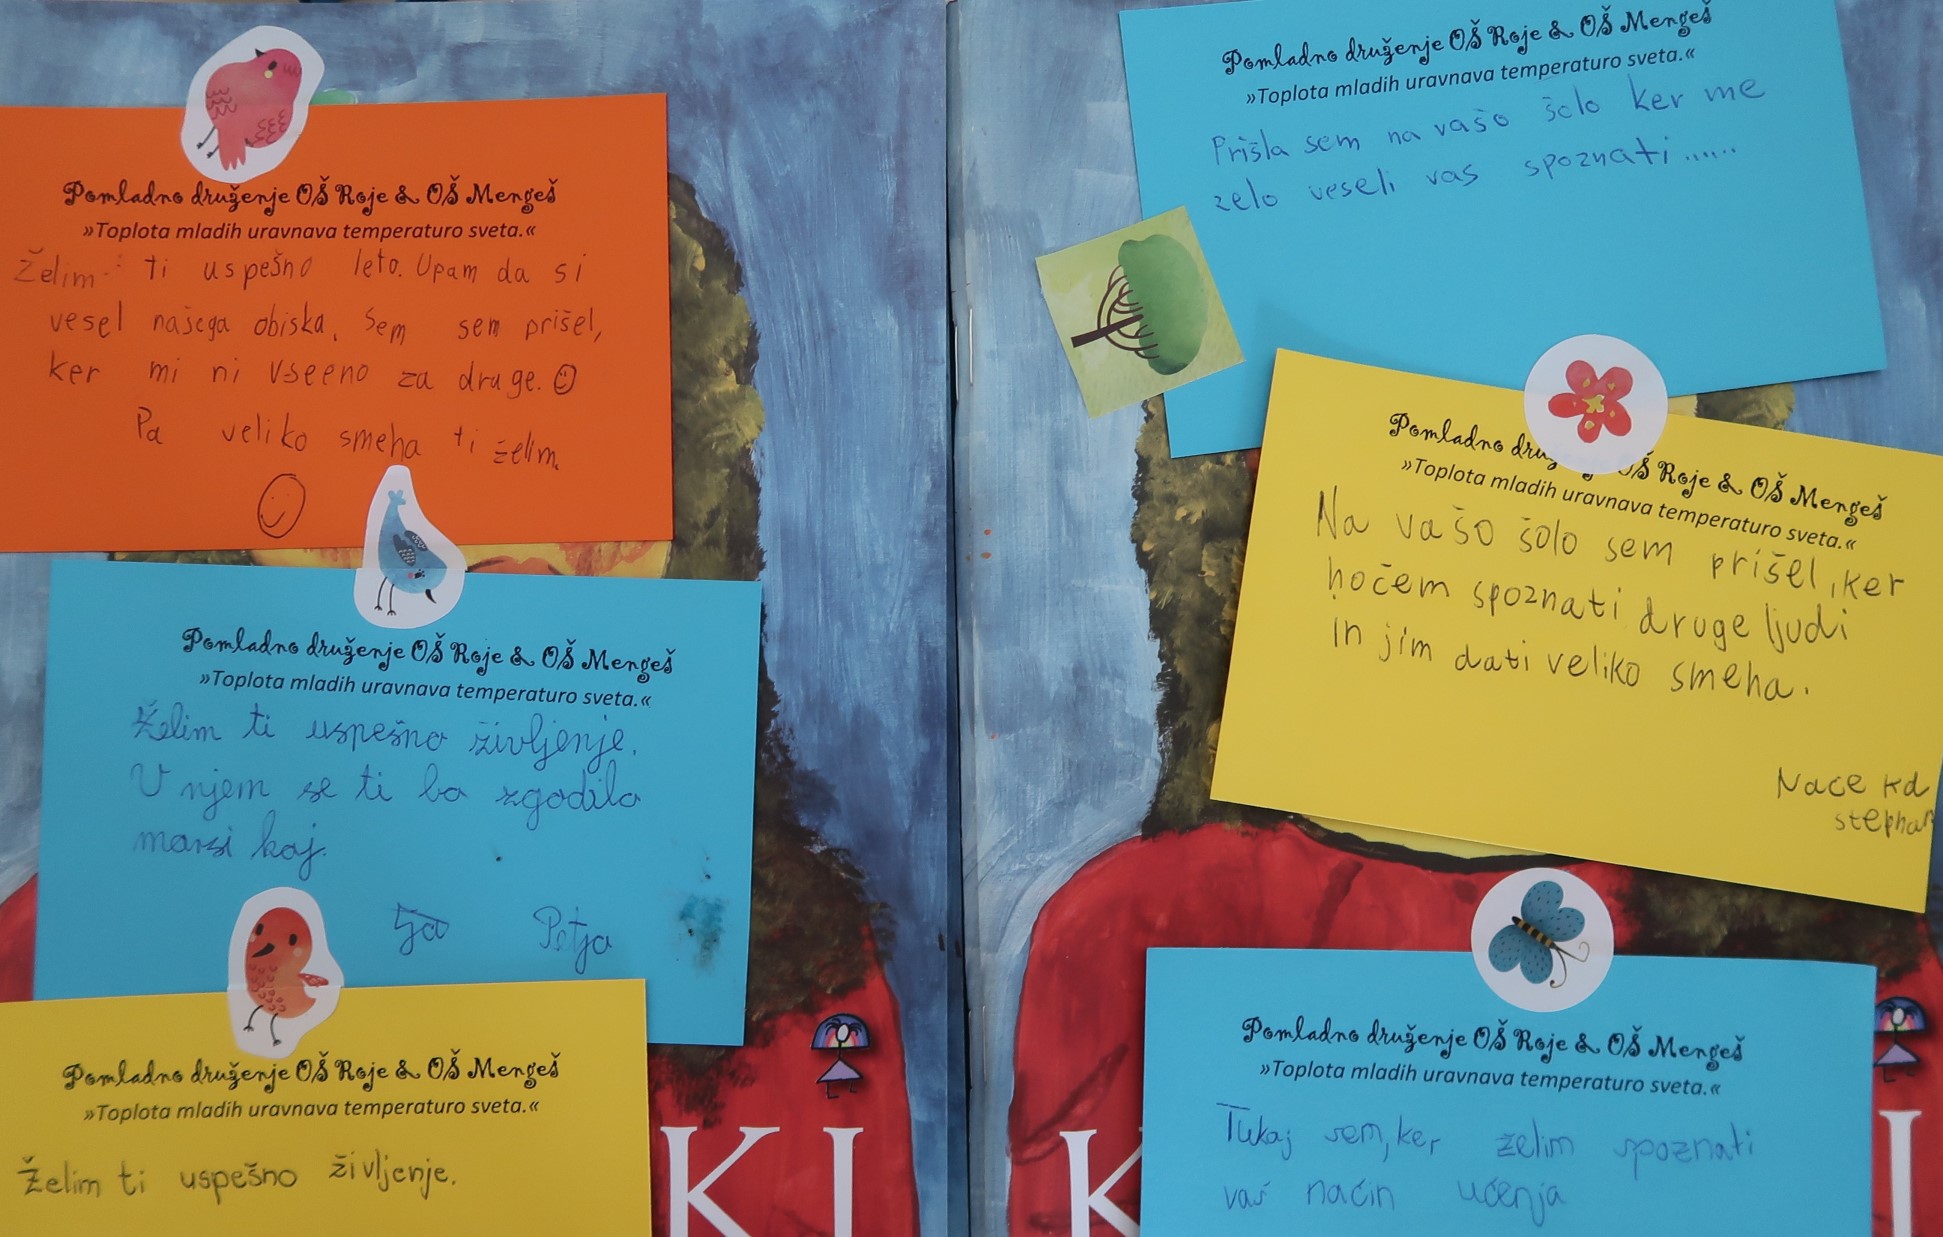 Pomladno druženje OŠ Roje & OŠ Mengeš
»Toplota mladih uravnava temperaturo sveta.«
Želim ti uspešno leto. Upam da si
vesel našega obiska. Sem sem prišel,
ker mi ni vseeno za druge.
Pa veliko smeha ti želim.
Pomladno druženje OŠ Roje & OŠ Mengeš
»Toplota mladih uravnava temperaturo sveta.«
Želim ti uspešno življenje.
V njem se ti bo zgodilo
marsi kaj.
Petja
Pomladno druženje OŠ Roje & OŠ Mengeš
»Toplota mladih uravnava temperaturo sveta.«
Želim ti uspešno življenje.
KI
Pomladno druženje OŠ Roje & OŠ Mengeš
»Toplota mladih uravnava temperaturo sveta.«
Prišla sem na vašo šolo ker me
zelo veseli vas spoznati......
Pomladno druženje OŠ Roje & OŠ Mengeš
»Toplota mladih uravnava temperaturo sveta.«
Na vašo šolo sem prišel, ker
hočem spoznati druge ljudi
in jim dati veliko smeha.
Nace Kd
stephan
Pomladno druženje OŠ Roje & OŠ Mengeš
»Toplota mladih uravnava temperaturo sveta.«
Tukaj sem, ker želim spoznati
vaš način učenja
K I